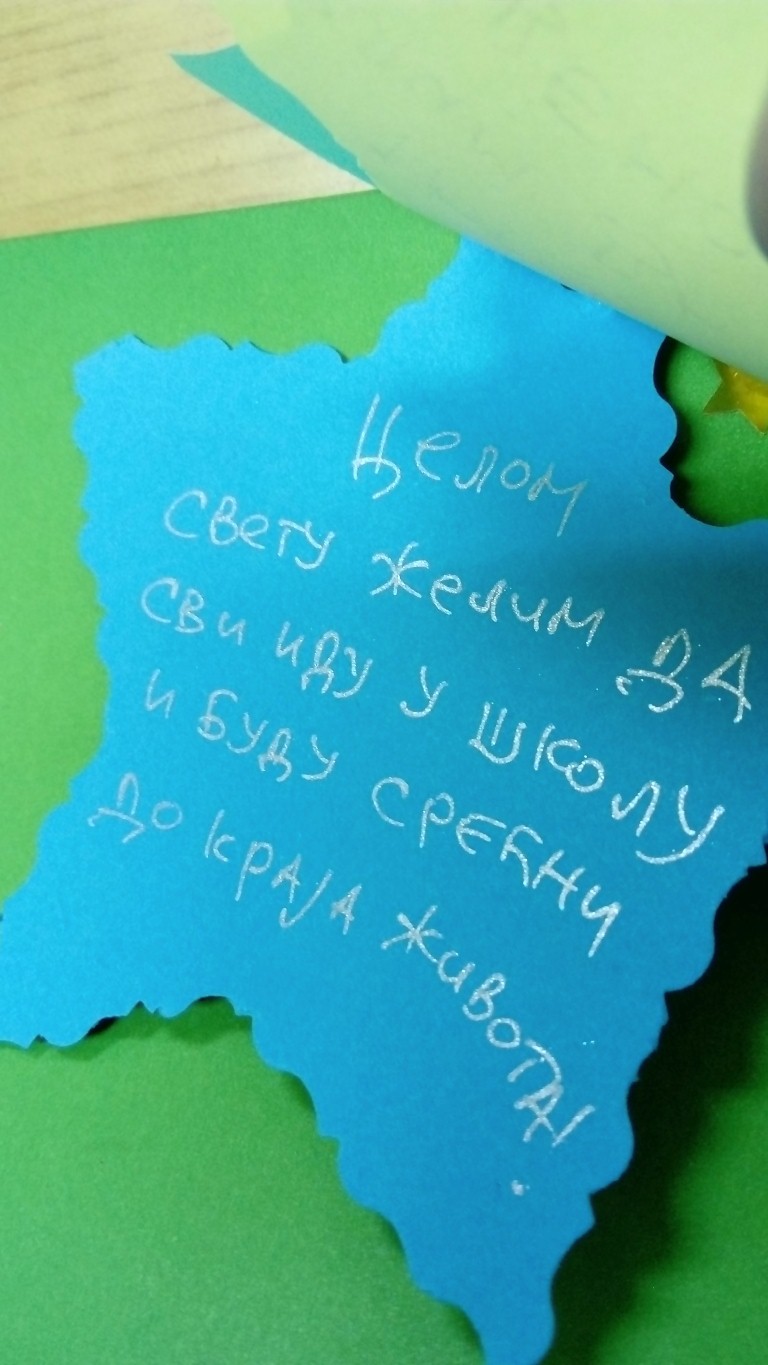 Целом
свету желим ДА
сви иду у школу
и буду срећни
до краја живота!